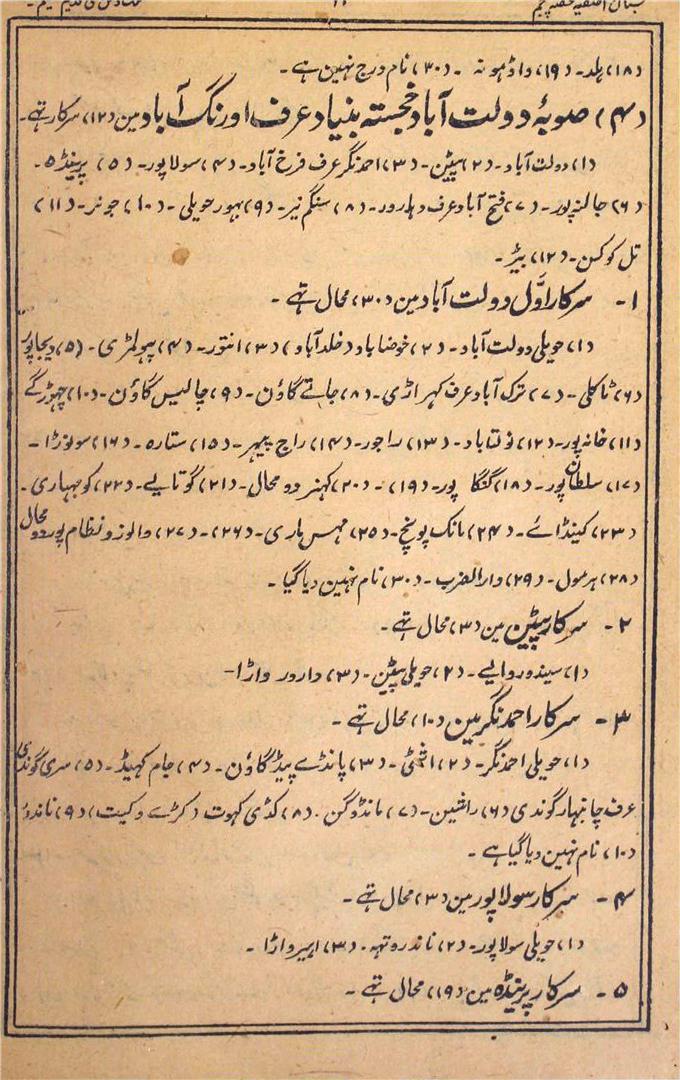 بستان آصفیہ حصہ پنجم
(۱۸) بلد۔ (۱۹) واڈہونہ ۔ (۳۰) نام درج نہین ہے۔
(۴) صوبۂ دولت آباد خجستہ بنیاد عرف اورنگ آباد مین (۱۲) سرکار تھے۔
(۱) دولت آباد۔ (۲) پٹن۔ (۳) احمد نگر عرف فرخ آباد۔ (۴) سولاپور۔ (۵) پرینڈہ۔
(۶) جالنہ پور۔ (۷) فتح آباد عرف دہارور۔ (۸) سنگم نیر۔ (۹) بہور حویلی ۔ (۱۰) جونر۔ (۱۱)
تل کوکن۔ (۱۲) بیڑ۔
۱۔ سرکار اوّل دولت آباد مین (۳۰) محال تھے ۔
(۱) حویلی دولت آباد۔ (۲) خوضاباد (خلدآباد) (۳) انتور۔ (۴) پہولمڑی۔ (۵) بیجاپور
(۶) ٹاکلی۔ (۷) ترک آباد عرف کہراڑی۔ (۸) جاتے گاؤن۔ (۹) چالیس گاؤن۔ (۱۰)
(۱۱) خانہ پور۔ (۱۲) نولتاباد۔ (۱۳) راجور۔ (۱۴) راج پیہر۔ (۱۵) ستارہ۔ (۱۶) سونوڑا۔
(۱۷) سلطان پور۔ (۱۸) گنگا پور۔ (۱۹) ۔ (۲۰) کہنر دو محال۔ (۲۱) گوتالے۔ (۲۲) کوہہاری۔
(۲۳) کینڈائے۔ (۲۴) مانک پونج۔ (۲۵) مہس ہاری۔ (۲۶)۔ (۲۷) والوز و نظام پور دو محال
(۲۸) ہرمول۔ (۲۹) دارالضرب۔ (۳۰) نام نہین دیا گیا۔
۲۔ سرکار پٹن مین (۳) محال تھے۔
(۱) سیندوروالے۔ (۲) حویلی پٹن۔ (۳) دارور واڑا۔
۳۔ سرکار احمد نگر مین (۱۰) محال تھے ۔
(۱) حویلی احمد نگر۔ (۲) (۳) پانڈے پیڈ گاؤن۔ (۴) جام کہیڈ۔ (۵) سری گوندی
عرف چانبہار گوندی (۶) راشین۔ (۷) مانڈوگن۔ (۸) کڈی کہوت (کڑے وکیت) (۹)
(۱۰) نام نہین دیا گیا ہے۔
۴۔ سرکار سولاپور مین (۳) محال تھے۔
(۱) حویلی سولاپور۔ (۲) ناندروتہہ۔ (۳) اہیرواڑا ۔
۵۔ سرکار پرینڈہ مین (۱۹) محال تھے ۔